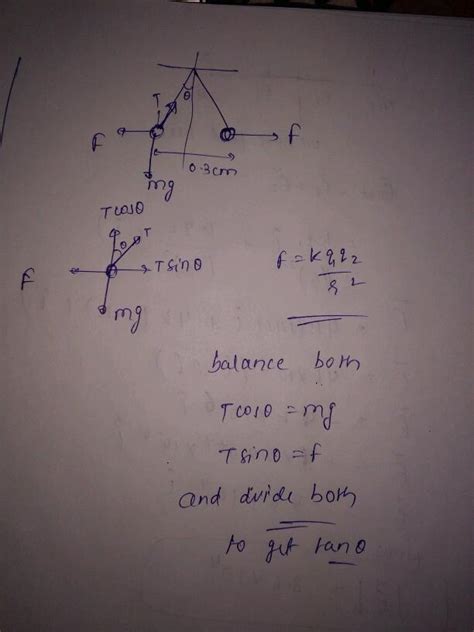 θ
T
F
f
0.3cm
mg
Tcosθ
θ T
F
Tsinθ
mg
f = kq1q2
r2
balance both
Tcosθ = mg
Tsinθ = f
and divide both
to get tanθ